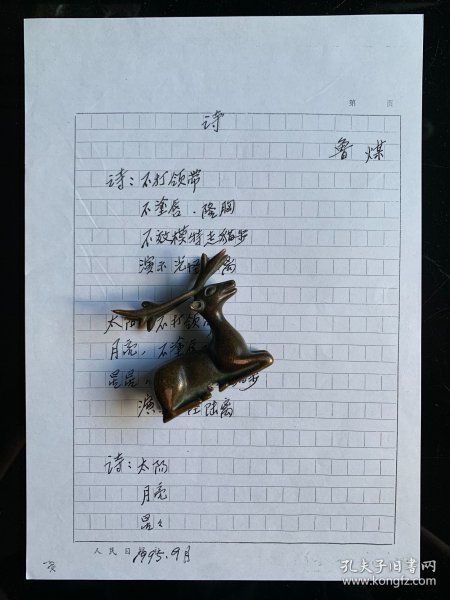 第 页
诗
鲁煤
诗：不打领带
不塗唇、隆胸
不效模特走猫步
演示光怪陆离
太阳，不打领
月亮，不塗唇
星星，步
演 陆离
诗：太阳
月亮
星々
人民日报
1995.9月
孔夫子旧书网
kongfz.com